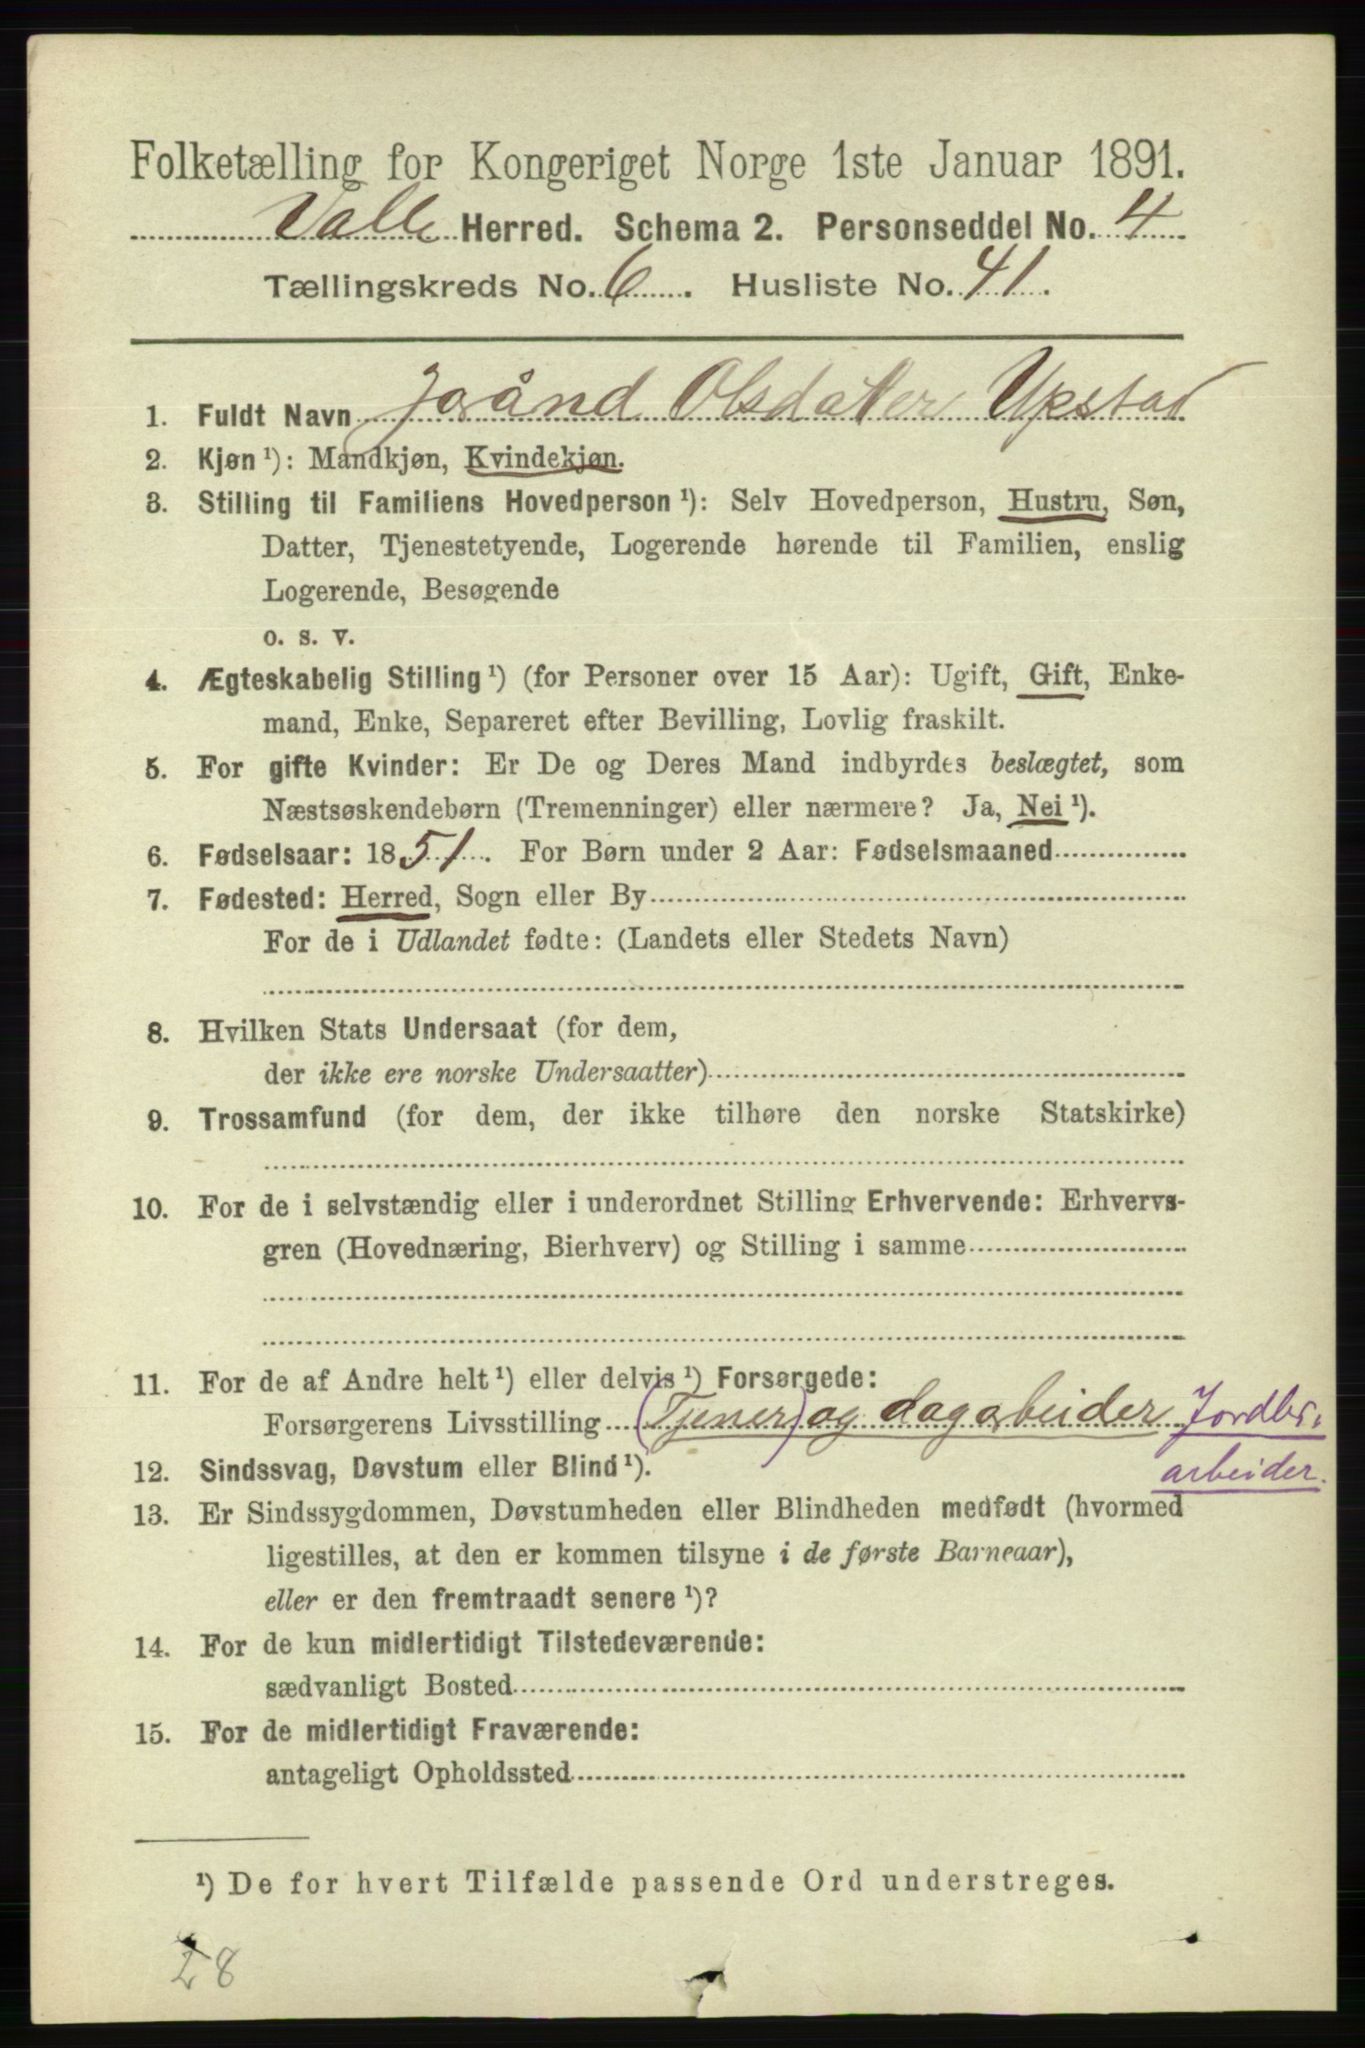 Folketælling for Kongeriget Norge 1ste Januar 1891.
Valle Herred. Schema 2. Personseddel No. 4
Tællingskreds No. 6. Husliste No. 41.
1. Fuldt Navn Joraand Olsdatter Upstad
2. Kjøn ¹): Mandkjøn, Kvindekjøn.
3. Stilling til Familiens Hovedperson ¹): Selv Hovedperson, Hustru, Søn,
Datter, Tjenestetyende, Logerende hørende til Familien, enslig
Logerende, Besøgende
o. s. v.
4. Ægteskabelig Stilling ¹) (for Personer over 15 Aar): Ugift, Gift, Enke-
mand, Enke, Separeret efter Bevilling, Lovlig fraskilt.
5. For gifte Kvinder: Er De og Deres Mand indbyrdes beslægtet, som
Næstsøskendebørn (Tremenninger) eller nærmere? Ja, Nei ¹).
6. Fødselsaar: 1851. For Børn under 2 Aar: Fødselsmaaned
7. Fødested: Herred, Sogn eller By
For de i Udlandet fødte: (Landets eller Stedets Navn)
8. Hvilken Stats Undersaat (for dem,
der ikke ere norske Undersaatter)
9. Trossamfund (for dem, der ikke tilhøre den norske Statskirke)
10. For de i selvstændig eller i underordnet Stilling Erhvervende: Erhvervs-
gren (Hovednæring, Bierhverv) og Stilling i samme
11. For de af Andre helt ¹) eller delvis ¹) Forsørgede:
Forsørgerens Livsstilling (Tjener) og dagarbeider Jordbr.
arbeider.
12. Sindssvag, Døvstum eller Blind ¹).
13. Er Sindssygdommen, Døvstumheden eller Blindheden medfødt (hvormed
ligestilles, at den er kommen tilsyne i de første Barneaar),
eller er den fremtraadt senere ¹)?
14. For de kun midlertidigt Tilstedeværende:
sædvanligt Bosted
15. For de midlertidigt Fraværende:
antageligt Opholdssted
¹) De for hvert Tilfælde passende Ord understreges.
28